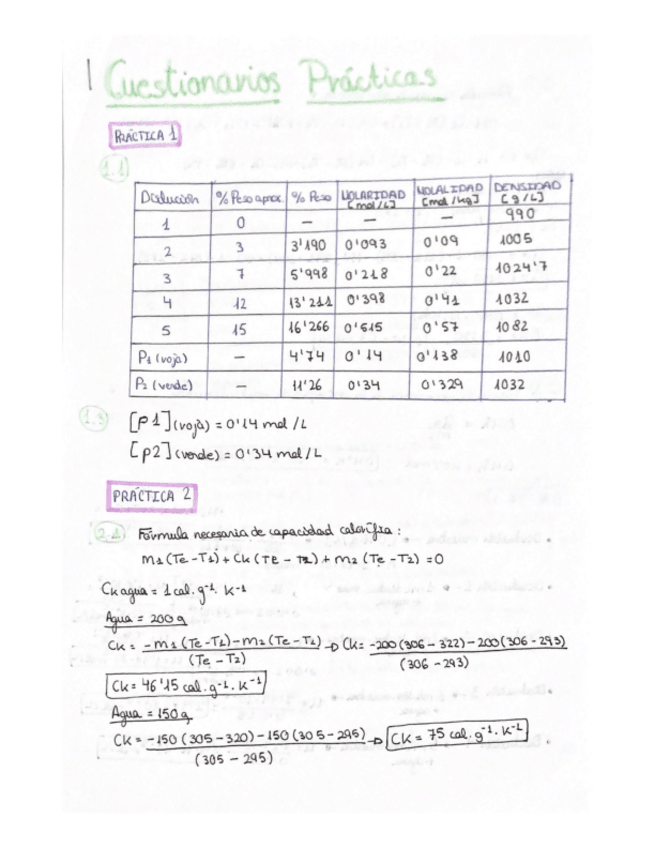 1 Cuestionarios Prácticas
PRÁCTICA 1
1.1)
Disolución % Peso aprox. % Peso MOLARIDAD [mol/L] MOLALIDAD [mol/kg] DENSIDAD [g/L]
1 0 — — — 990
2 3 3'190 0'093 0'09 1005
3 7 5'998 0'218 0'22 1024'7
4 12 13'211 0'398 0'41 1032
5 15 16'266 0'515 0'57 1082
P1 (roja) — 4'74 0'14 0'138 1010
P2 (verde) — 11'26 0'34 0'329 1032
1.3) [P1] (roja) = 0'14 mol/L
[P2] (verde) = 0'34 mol/L
PRÁCTICA 2
2.1) Fórmula necesaria de capacidad calorífica:
m1 (Te - T1) + Ck (TE - T2) + m2 (Te - T2) = 0
Ck agua = 1 cal. g⁻¹. K⁻¹
Agua = 200 g
Ck = -m1 (Te - T1) - m2 (Te - T2) / (Te - T2) → Ck = -200 (306 - 322) - 200 (306 - 293) / (306 - 293)
Ck = 46'15 cal. g⁻¹. K⁻¹
Agua = 150 g
Ck = -150 (305 - 320) - 150 (305 - 295) / (305 - 295) → Ck = 75 cal. g⁻¹. K⁻¹